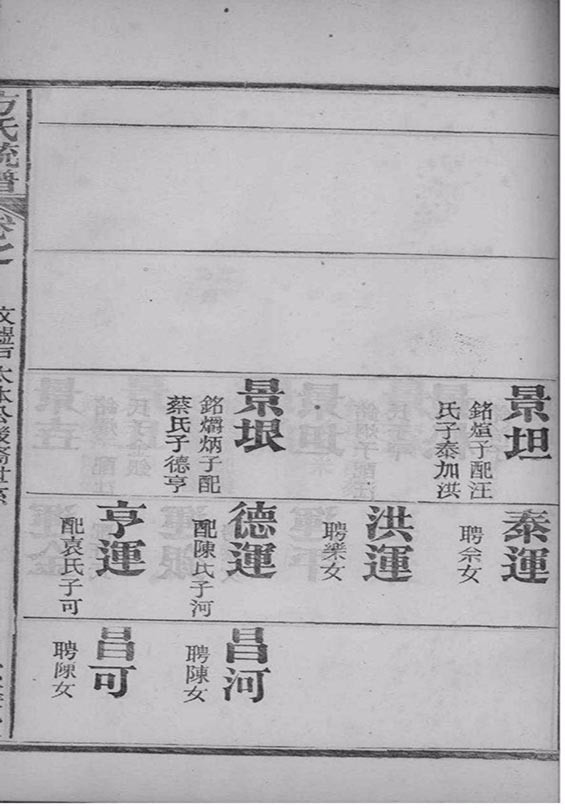 景坦
銘煊子配汪
氏子泰加洪
景垠
銘爝炳子配
蔡氏子德亨
泰運
聘余女
洪運
聘樂女
德運
配陳氏子河
亨運
配袁氏子可
昌河
聘陳女
昌可
聘陳女
方氏統譜
卷之一